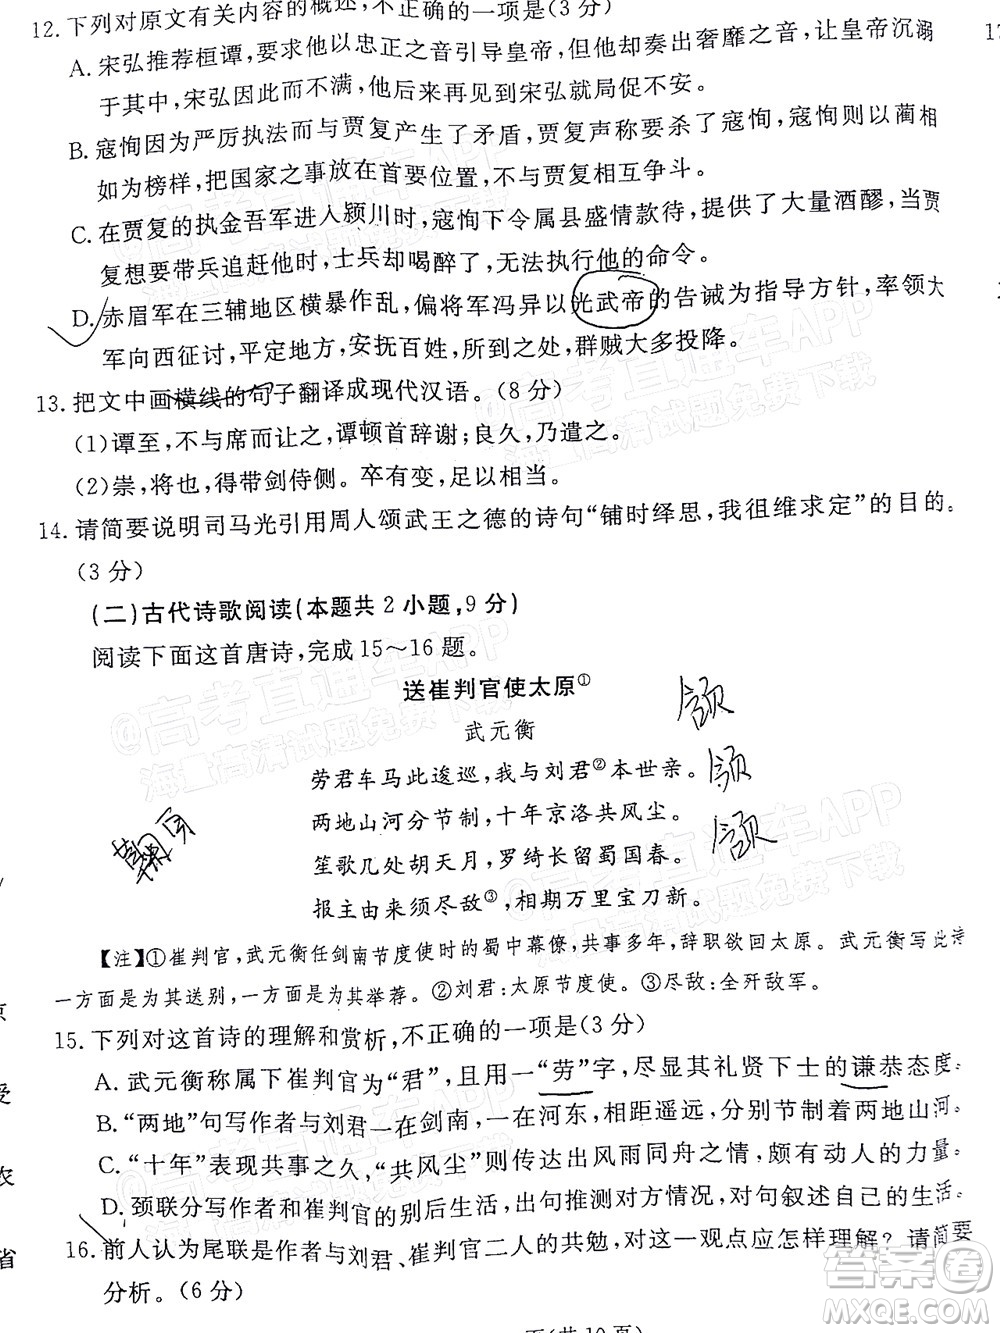 12. 下列对原文有关内容的概述，不正确的一项是（3分）
A. 宋弘推荐桓谭，要求他以忠正之音引导皇帝，但他却奏出奢靡之音，让皇帝沉溺
于其中，宋弘因此而不满，他后来再见到宋弘就局促不安。
B. 寇恂因为严厉执法而与贾复产生了矛盾，贾复声称要杀了寇恂，寇恂以蔺相
如为榜样，把国家之事放在首要位置，不与贾复互相争斗。
C. 在贾复的执金吾军进入颍川时，寇恂下令属县盛情款待，提供了大量酒醪，贾
复想要带兵追赶他时，士兵却喝醉了，无法执行他的命令。
D. 赤眉军在三辅地区横暴作乱，偏将军冯异以光武帝的告诫为指导方针，率领大
军向西征讨，平定地方，安抚百姓，所到之处，群贼大多投降。
13. 把文中画横线的句子翻译成现代汉语。（8分）
(1)谭至，不与席而让之，谭顿首辞谢；良久，乃遣之。
(2)崇，将也，得带剑侍侧。卒有变，足以相当。
14. 请简要说明司马光引用周人颂武王之德的诗句“铺时绎思，我徂维求定”的目的。
（3分）
（二）古代诗歌阅读（本题共2小题，9分）
阅读下面这首唐诗，完成15～16题。
送崔判官使太原①
武元衡
劳君车马此逡巡，我与刘君②本世亲。
两地山河分节制，十年京洛共风尘。
笙歌几处胡天月，罗绮长留蜀国春。
报主由来须尽敌③，相期万里宝刀新。
颔
颔
颔
【注】①崔判官，武元衡任剑南节度使时的蜀中幕僚，共事多年，辞职欲回太原。武元衡写此诗
一方面是为其送别，一方面是为其举荐。②刘君：太原节度使。③尽敌：全歼敌军。
15. 下列对这首诗的理解和赏析，不正确的一项是（3分）
A. 武元衡称属下崔判官为“君”，且用一“劳”字，尽显其礼贤下士的谦恭态度。
B. “两地”句写作者与刘君一在剑南，一在河东，相距遥远，分别节制着两地山河。
C. “十年”表现共事之久，“共风尘”则传达出风雨同舟之情，颇有动人的力量。
D. 颈联分写作者和崔判官的别后生活，出句推测对方情况，对句叙述自己生活。
16. 前人认为尾联是作者与刘君、崔判官二人的共勉，对这一观点应怎样理解？请简要
分析。（6分）
页（共10页）
17
京
受
农
省
@高考直通车APP
海量高清试题免费下载
答案圈
MXQE.COM